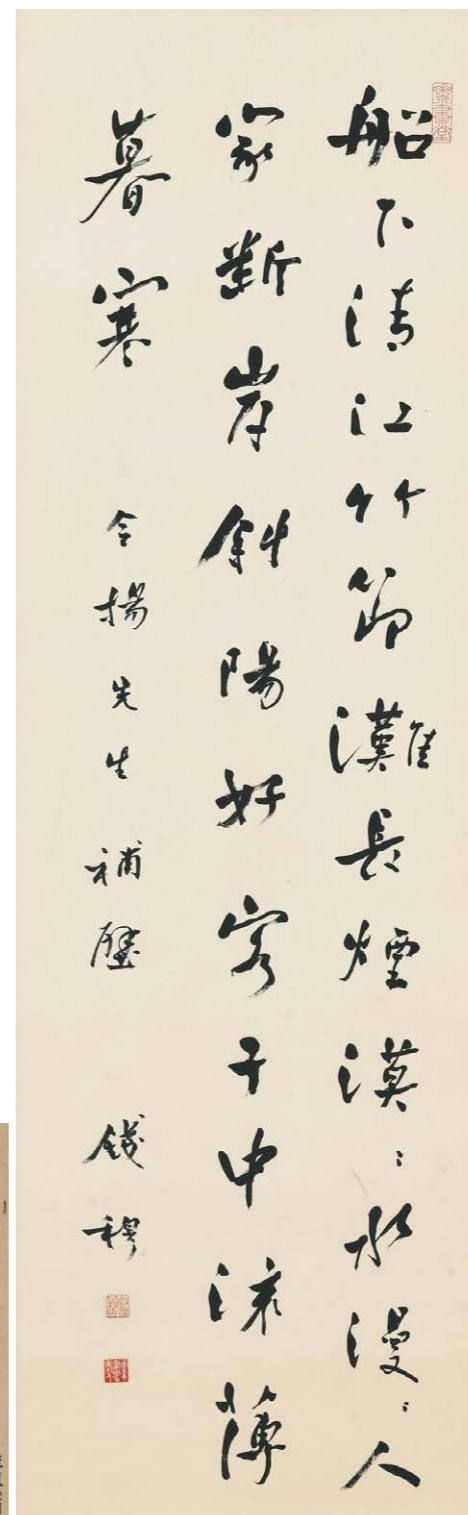 素書堂
船下清江竹節灘長煙漠〻水漫〻人
家斷岸斜陽好客子中流薄
暮寒 令揚先生補壁 錢穆